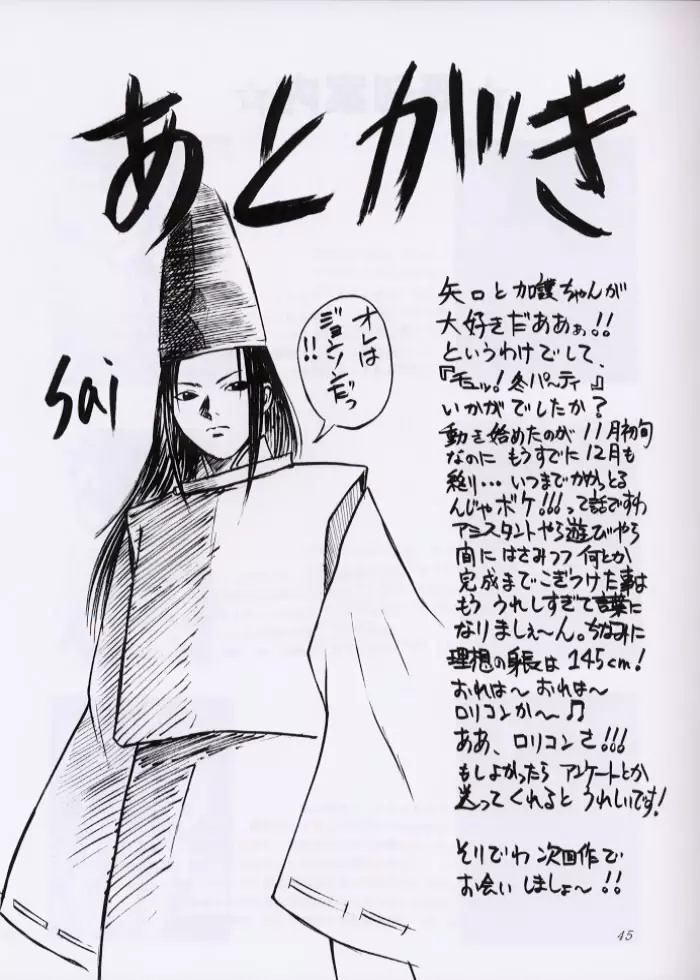 あとがき
sai
オレは
ジョンソンだっ
!!
矢口と加護ちゃんが
大好きだあぁぁ!!
というわけでして、
『モーッ!冬パーティ』
いかがでしたか?
動き始めたのが11月初旬
なのに もうすでに12月も
終り… いつまでかかっとる
んじゃボケ!!!って話ですわ
アシスタントやら遊びやら
間にはさみつつ何とか
完成までこぎつけた事は
もう うれしすぎて言葉に
なりましぇ〜ん。ちなみに
理想の身長は145cm!
おれは〜 おれは〜
ロリコンか〜♫
ああ、ロリコンさ!!!
もしよかったら アンケートとか
送ってくれると うれしいです!
そりでわ 次回作で
お会いしましょ〜!!
45